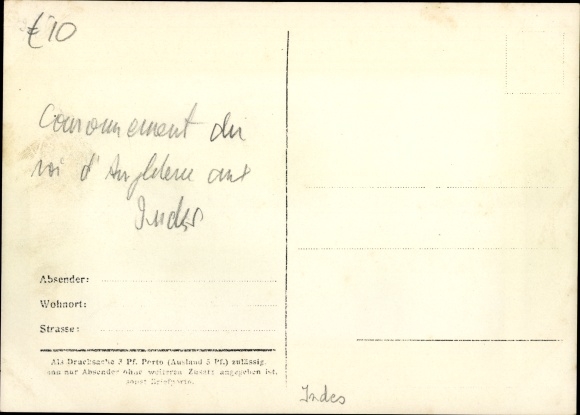 €10
Couronnement du
roi d'Angleterre aux
Indes
Absender:
Wohnort:
Strasse:
Als Drucksache 3 Pf. Porto (Ausland 5 Pf.) zulässig,
wenn nur Absender ohne weiteren Zusatz angegeben ist,
sonst Briefporto.
Indes